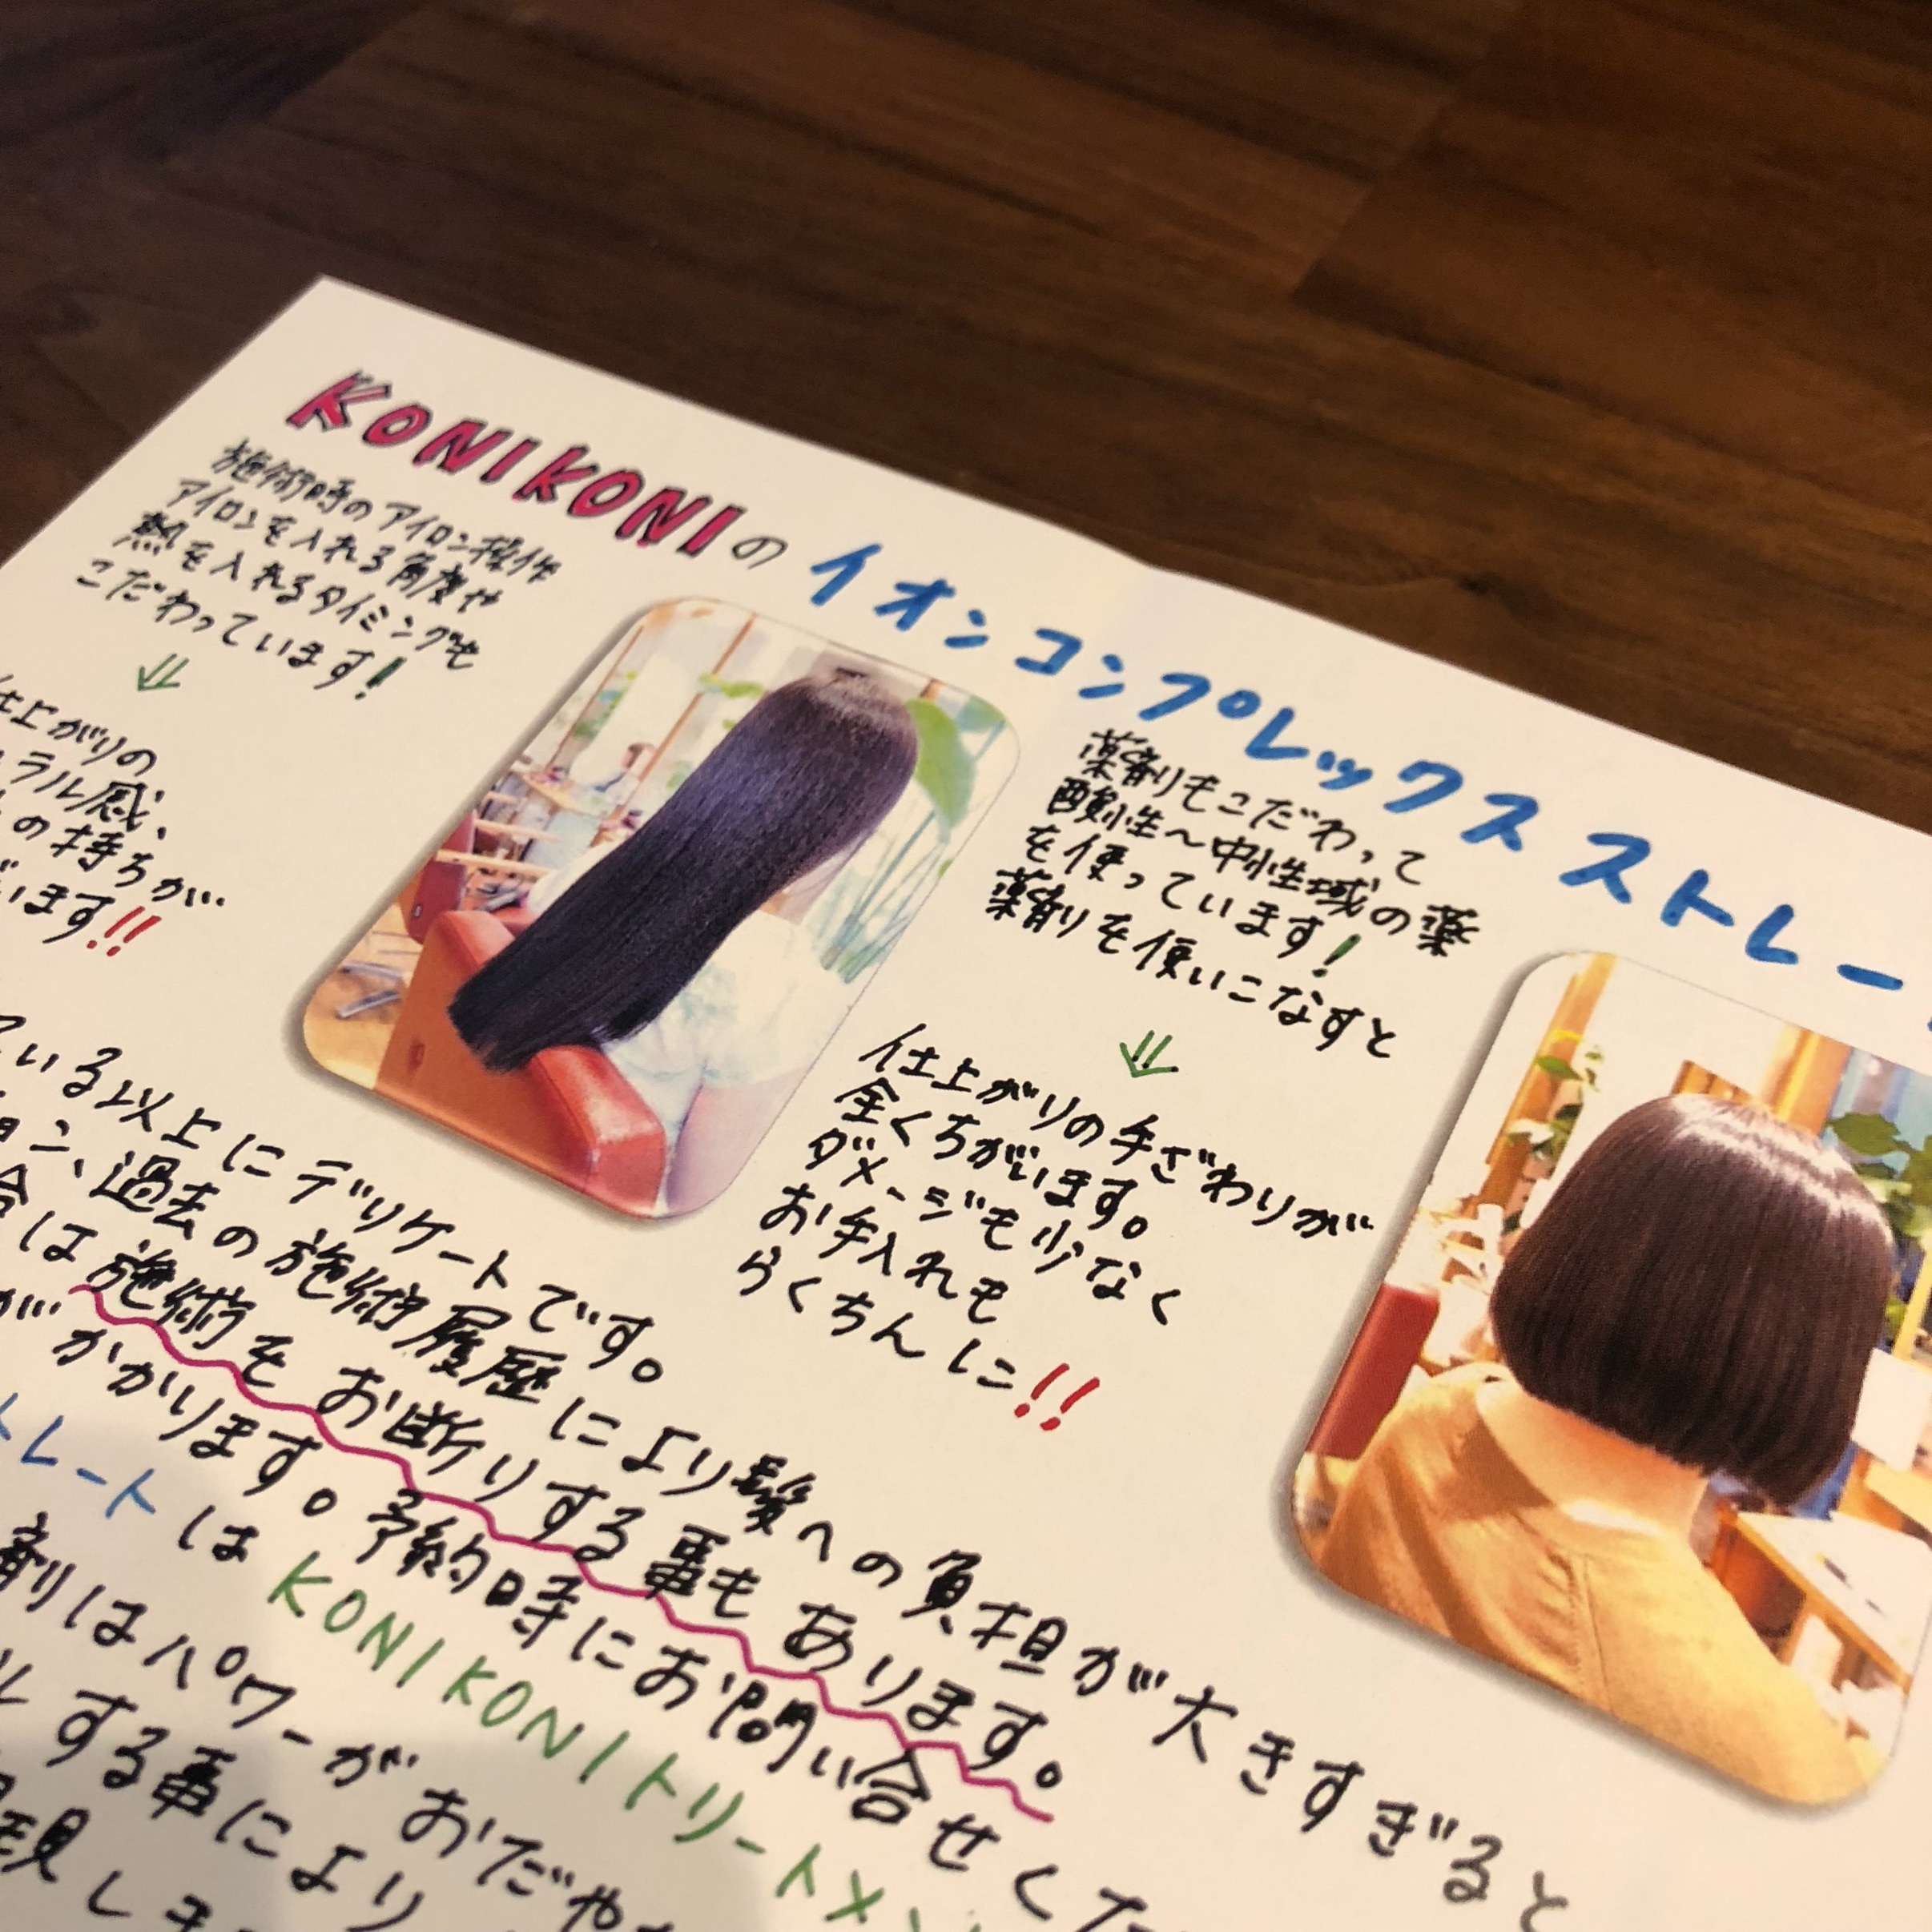 KONIKONIの イオンコンプレックス ストレー
施術時のアイロン操作
アイロンを入れる角度や
熱を入れるタイミングも
こだわっています!
仕上がりの
ラル感、
の持ちが
います!!
薬剤もこだわって
酸性～中性域の薬
を使っています!
薬剤を使いこなすと
仕上がりの手ざわりが
全くちがいます。
ダメージも少なく
お手入れも
らくちんに!!
ている以上にデリケートです。
ョン、過去の施術履歴により髪への負担が大きすぎると
合は施術をお断りする事もあります。
がかかります。予約時にお問い合せくだ
トレートは KONIKONIトリートメン
剤はパワーがおだや
する事により
現しま